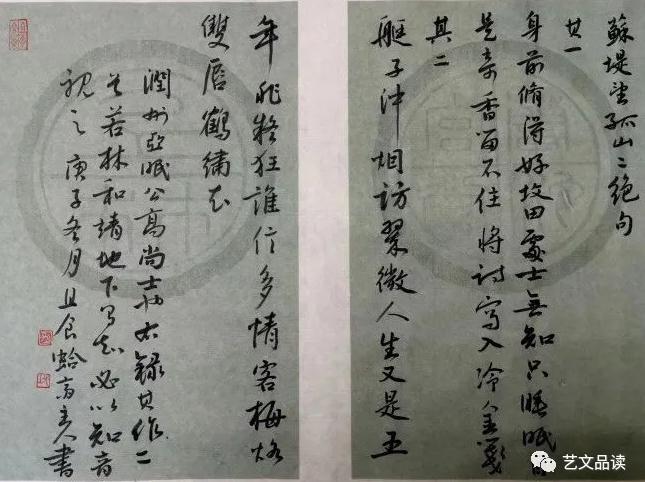 蘇堤望孤山二絕句
其一
身前脩得好坟田處士無知只睡眠可
是奇香留不住將詩寫入冷金箋
其二
艇子沖烟訪翠微人生又是五
年非輕狂誰信多情客梅烙
雙唇鶴繡衣
潤州亞眠公高尚士也右錄其作二
首若林和靖地下有知必以知音
視之庚子冬月且食蛤齋主人書
艺文品读